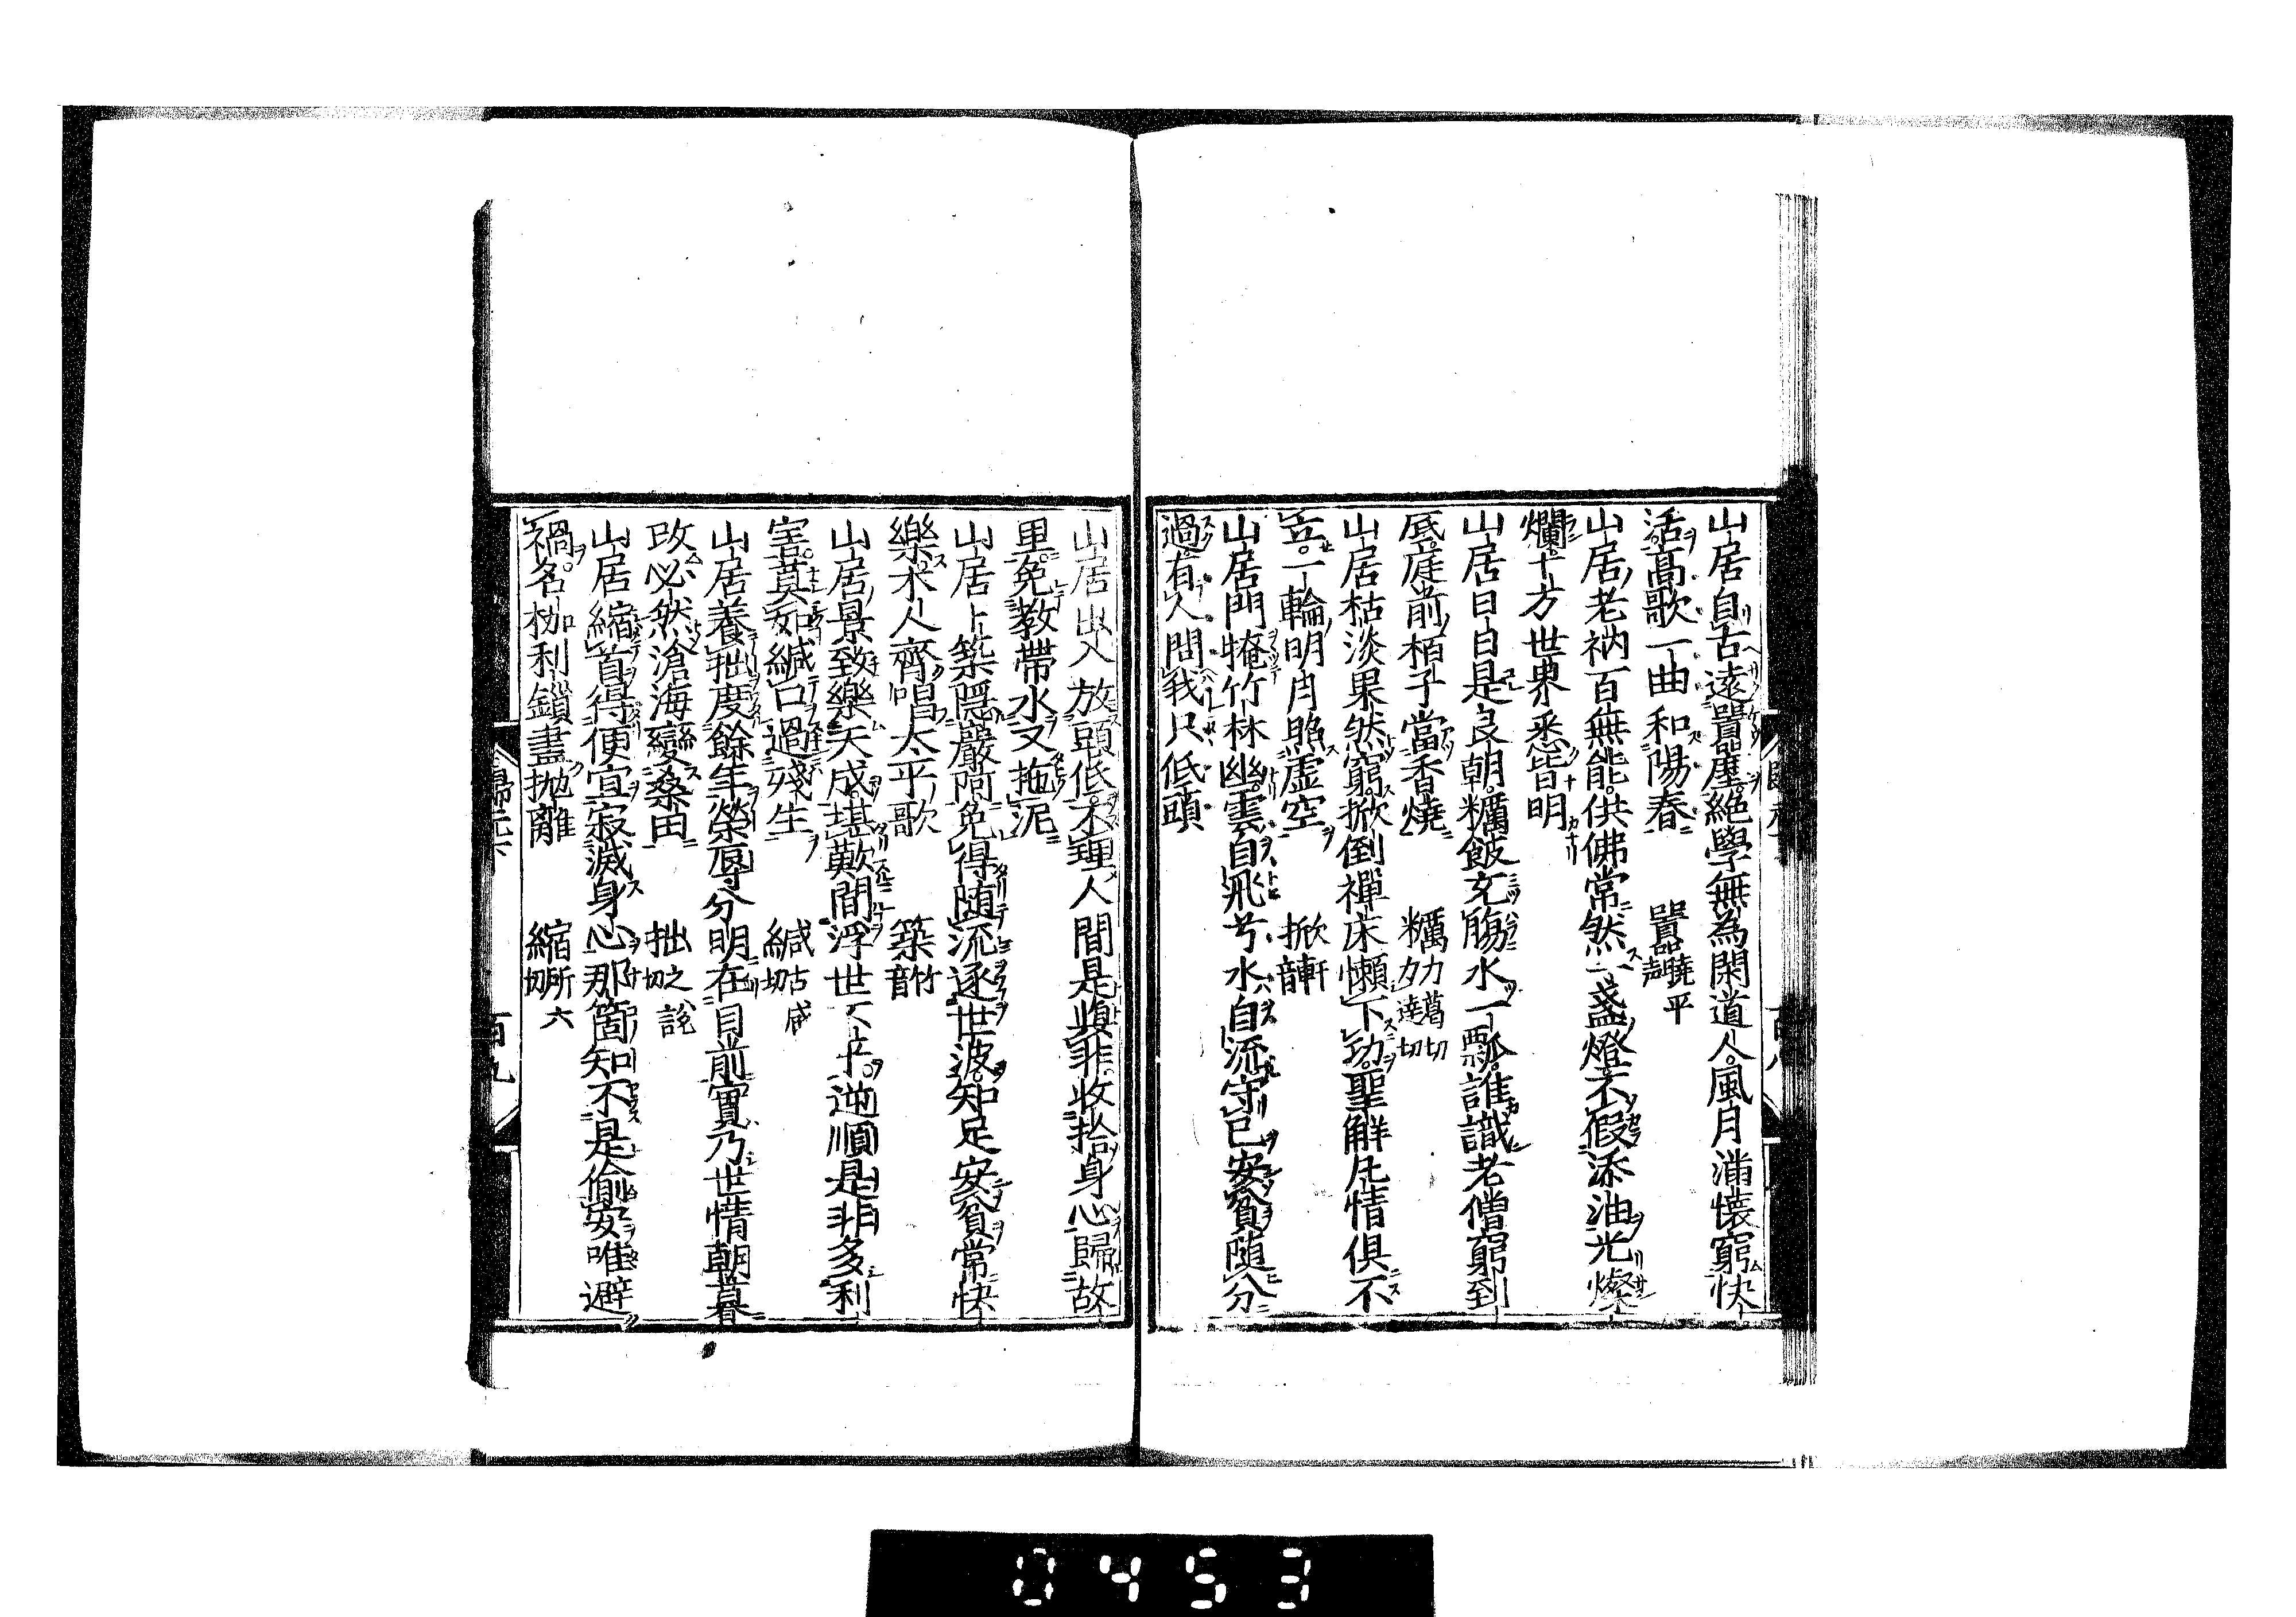 山居自古遠囂塵絶學無為閑道人風月滿懐窮快
活高歌一曲和陽春 囂曉平声
山居老衲百無能供佛常然一盞燈不假添油光燦
爛十方世界悉皆明
山居日日是良朝糲飯充膓水一瓢誰識老僧窮到
底庭前栢子當香燒 糲力葛切力達切
山居枯淡果然窮掀倒禪床懶下功聖觧凡情俱不
立一輪明月照虚空 掀音軒
山居門掩竹林幽雲自飛兮水自流守已安貧随分
過有人問我只低頭
山居出入放頭低不理人間是與非收拾身心歸故
里免教帶水又拖泥
山居卜築隠巖阿免得随流逐世波知足安貧常快
樂木人齊唱太平歌 築音竹
山居景致樂天成堪歎間浮世不平逆順是非多利
害莫如緘口過殘生 緘古咸切
山居養拙度餘年榮辱分明在目前實乃世情朝暮
改必然滄海變桑田 拙之說切
山居縮首得便宜寂滅身心那箇知不是偷安唯避
禍名枷利鎖盡抛離 縮所六切
歸元下
百九
0453